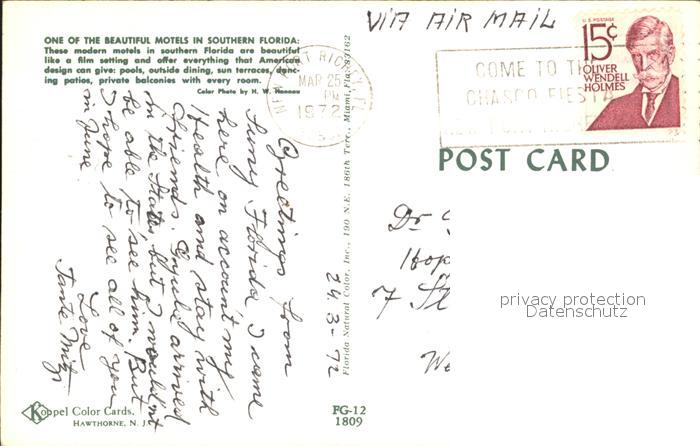 VIA AIR MAIL
ONE OF THE BEAUTIFUL MOTELS IN SOUTHERN FLORIDA:
These modern motels in southern Florida are beautiful
like a film setting and offer everything that American
design can give: pools, outside dining, sun terraces, danc-
ing patios, private balconies with every room.
Color Photo by H. W. Hannau
MAR 25
PM
1972
COME TO TH
CHASCO FIESTA
U.S. POSTAGE
15c
OLIVER
WENDELL
HOLMES
POST CARD
Greetings from
Sunny Florida I came
here on account my
Health and stay with
friends. arrived
in the States but I wouldn't
be able to see him. But
I hope to see all of you
in June
Love
Tante Mitzi
24-3-72
Florida Natural Color, Inc., 190 N.E. 186th Terr., Miami, Fla. 33162
Dr
Hop
7 St
We
privacy protection
Datenschutz
Koppel Color Cards.
HAWTHORNE, N. J.
FG-12
1809